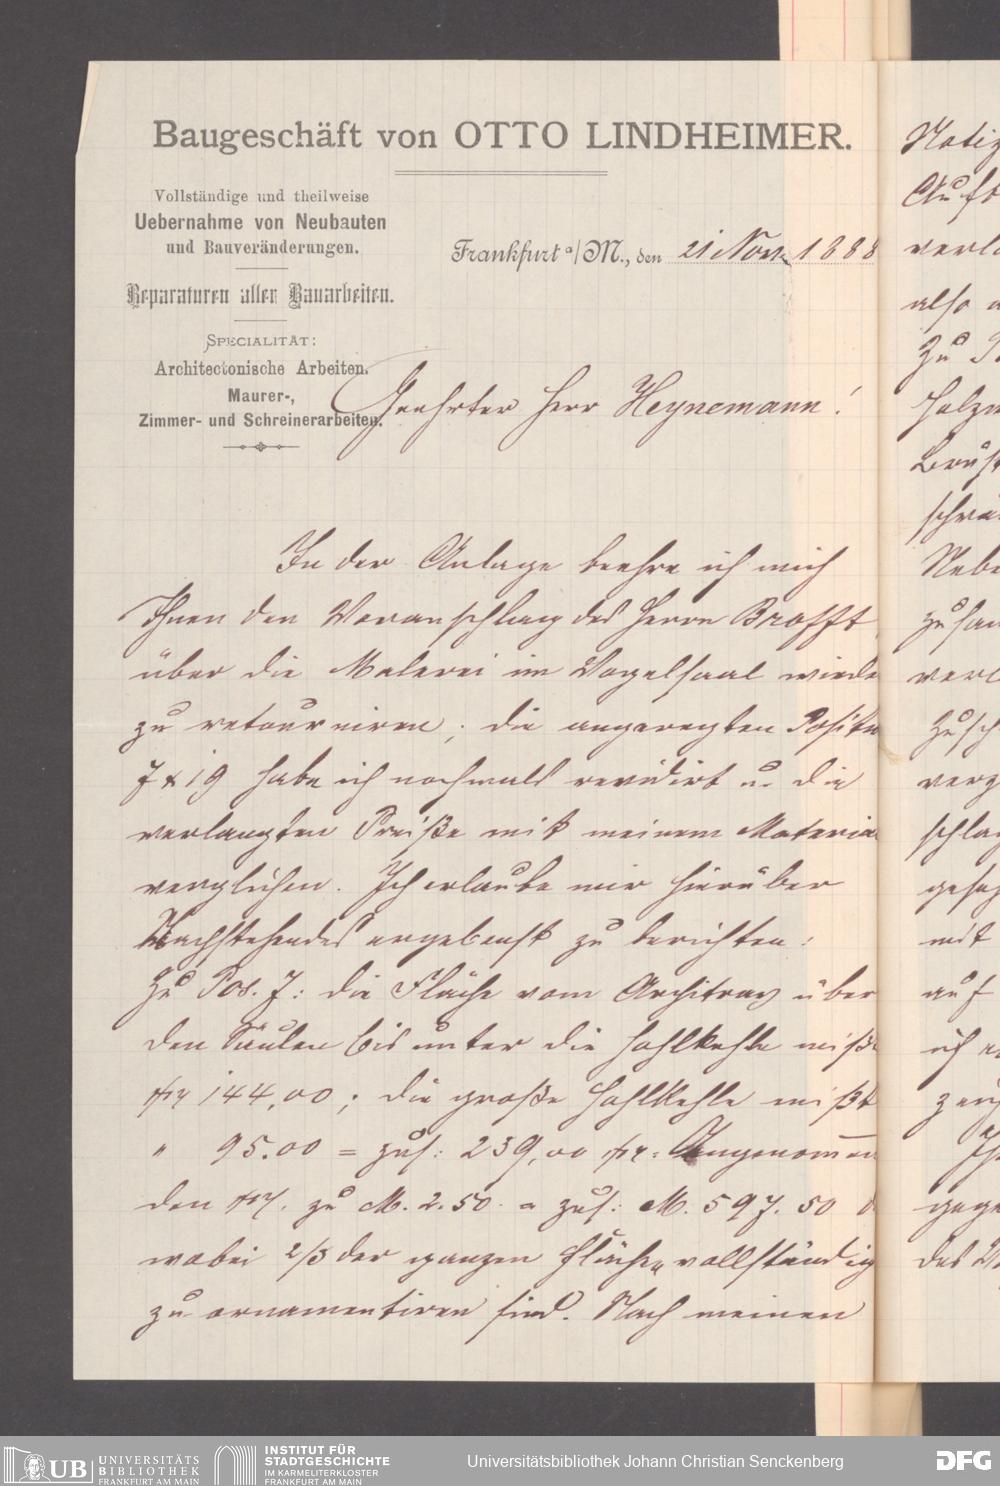 Baugeschäft von OTTO LINDHEIMER.
Vollständige und theilweise
Uebernahme von Neubauten
und Bauveränderungen.
Reparaturen aller Bauarbeiten.
SPECIALITÄT:
Architectonische Arbeiten.
Maurer-,
Zimmer- und Schreinerarbeiten.
Frankfurt a/M., den 21 Nov. 1888
Geehrter Herr Heynemann!
In der Anlage beehre ich mich
Ihnen den Voranschlag des Herrn Brofft
über die Malerei im Vogelsaal wiede
zu retourniren; die angeregten Posit
7 & 19 habe ich nochmals revidirt u. die
verlangten Preiße mit meinem Materia
verglichen. Ich erlaube mir hierüber
Nachstehendes ergebenst zu berichten:
Zu Pos. 7: die Fläche vom Architrav über
den Säulen bis unter die Hohlkehle mißt
144,00; die große Hohlkehle mißt
" 95.00 = zus: 239,00 Angenommen
den zu M. 2.50 = zus: M. 597.50
wobei 2/3 der ganzen Fläche vollständig
zu ornamentiren sind. Nach meinen
Notiz
Aufst
verl
also
Zu
Holz
Brüst
schrä
Nebe
zusam
verl
Zusch
verg
schlag
gesag
mit
auf
ich
gege
des
UB UNIVERSITÄTS
BIBLIOTHEK
FRANKFURT AM MAIN
INSTITUT FÜR
STADTGESCHICHTE
IM KARMELITERKLOSTER
FRANKFURT AM MAIN
Universitätsbibliothek Johann Christian Senckenberg
DFG